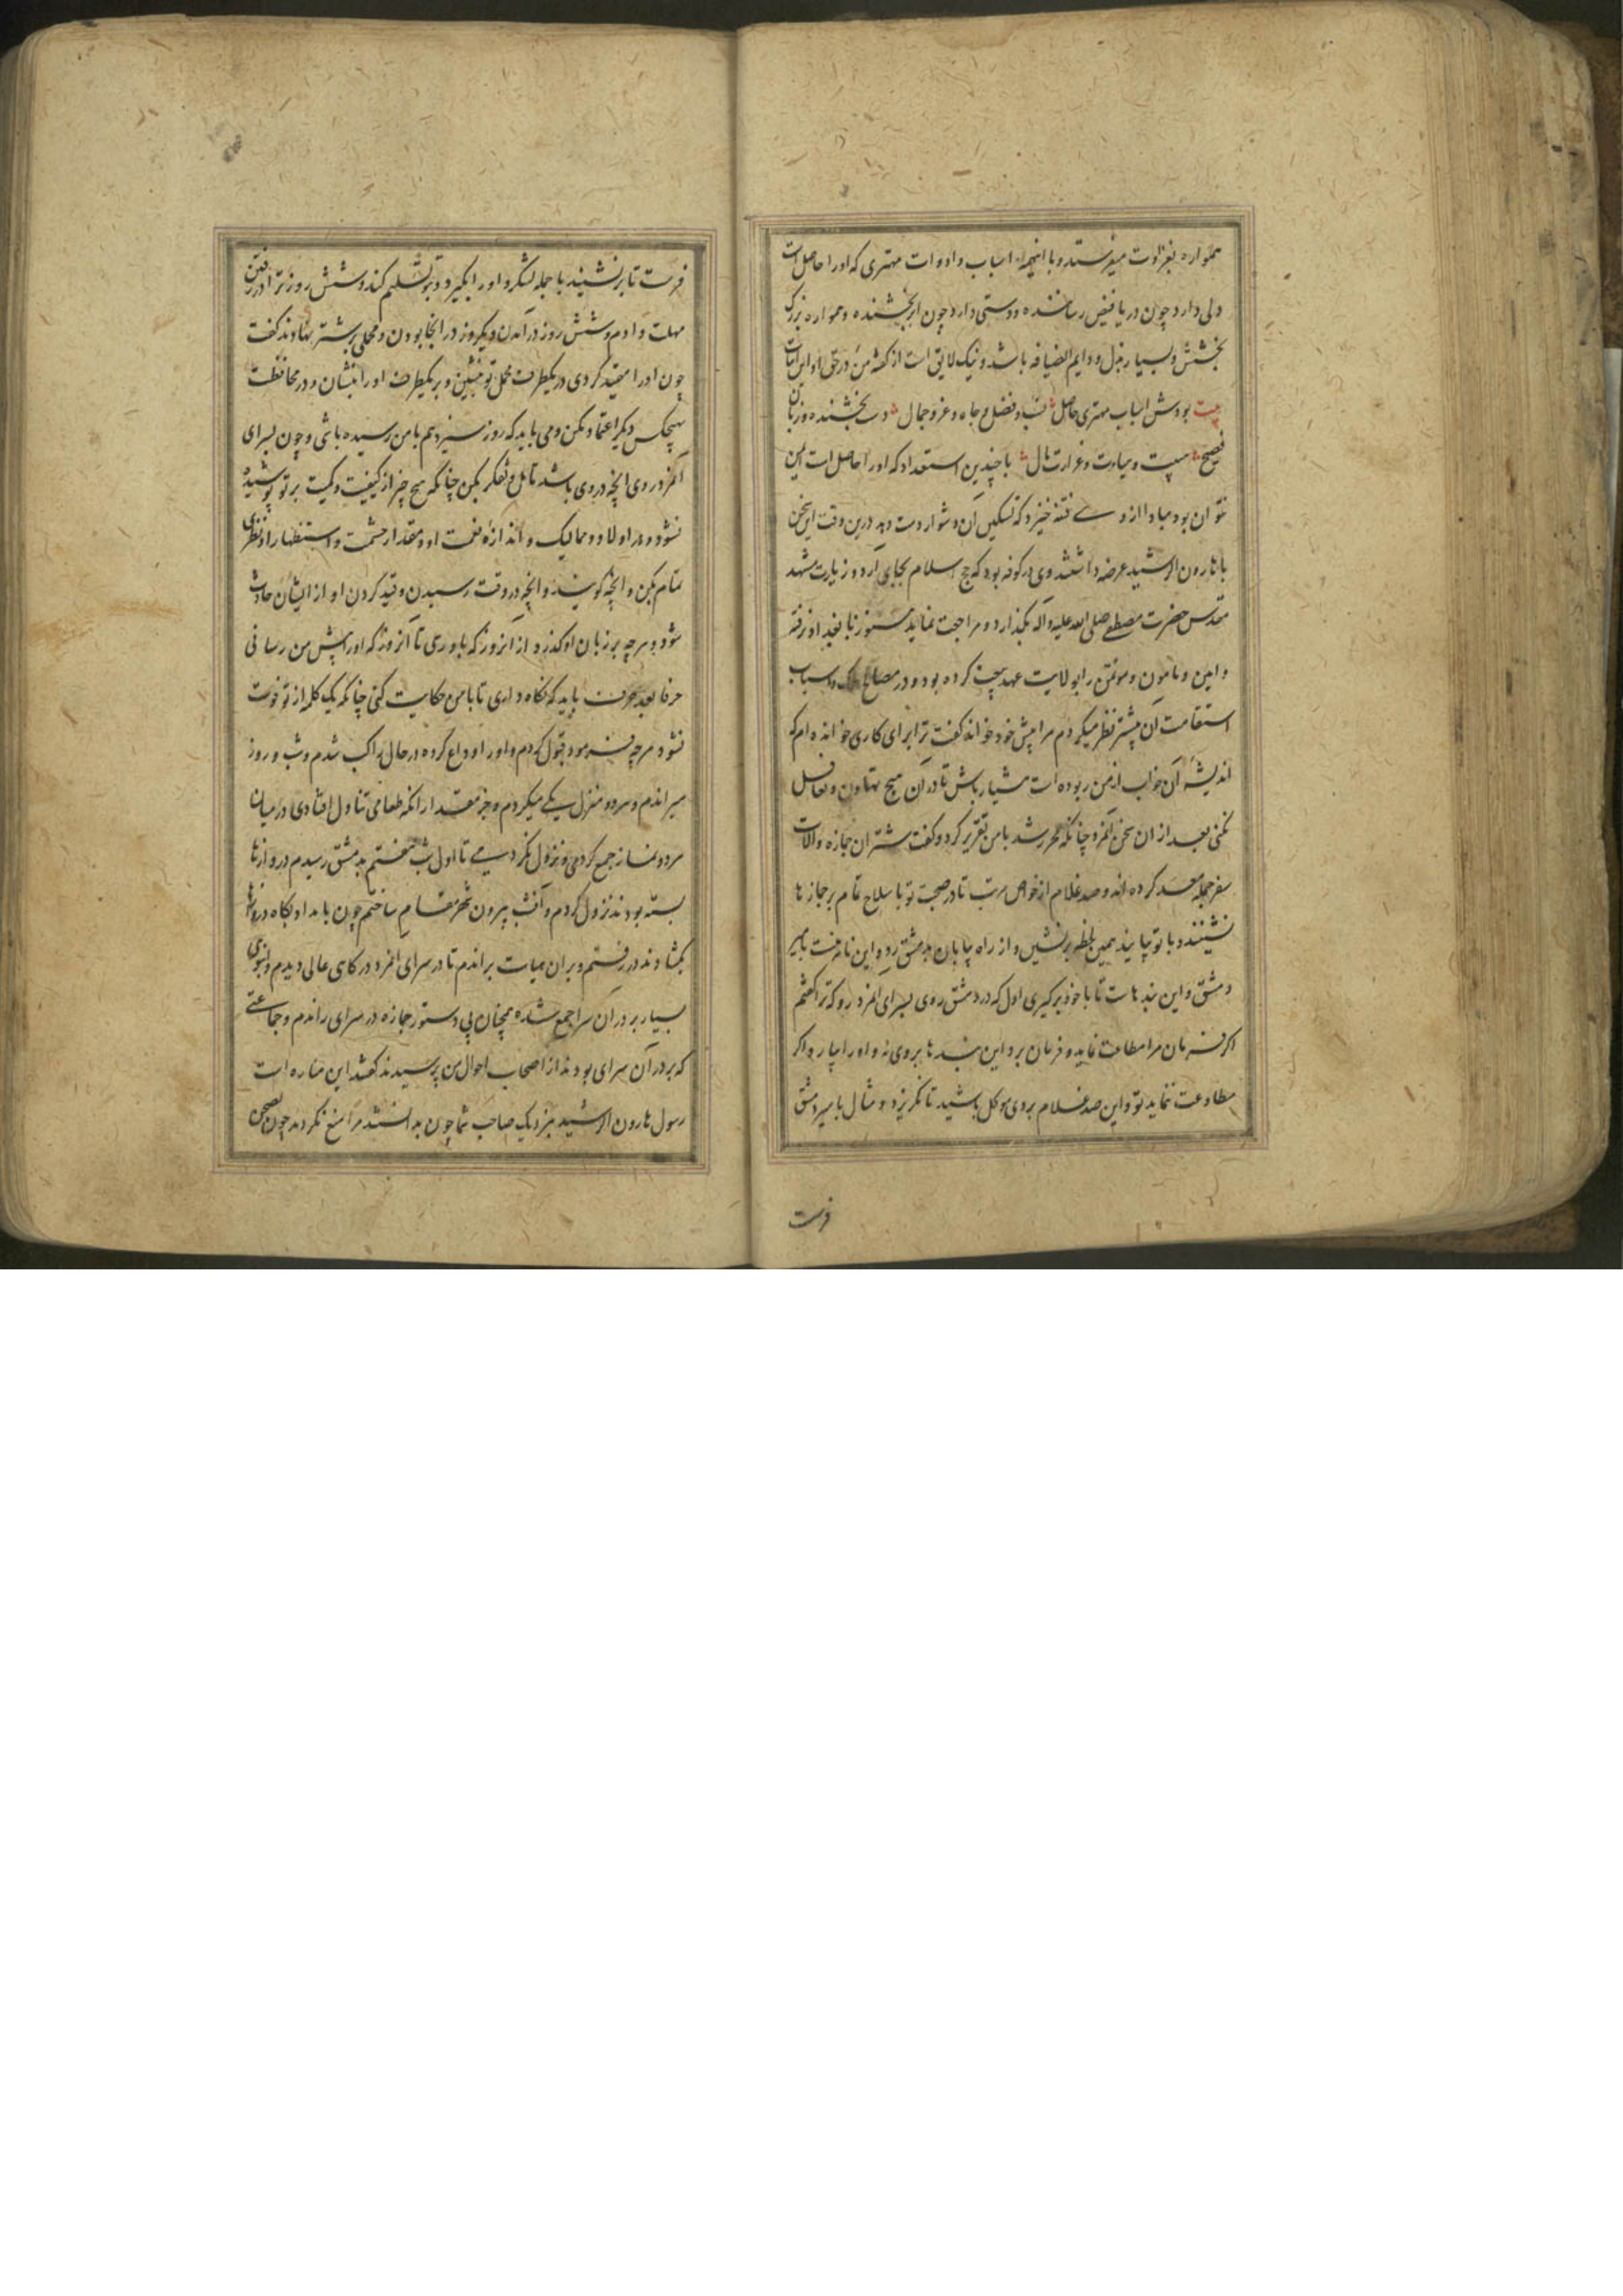 همواره بغزاوت میفرستد و با اینهمه اسباب و ادوات مهتری که او را حاصل است
دلی دارد چون دریا فیض رساننده و دستی دارد چون ابر بخشنده و همواره بزرگ
بخشش و بسیار بذل و دایم الضیافه باشد و نیک لایق است از گفته من در حق او این ابیات
بیت بودش اسباب مهتری حاصل نسب و فضل و جاه و عز و جمال دست بخشنده و زبان
فصیح هیبت و سیادت و غزارت مال با چندین استعداد که او را حاصل است ایمن
نتوان بود مبادا از وی فتنه خیزد که تسکین آن دشوار دست دهد درین وقت این سخن
با هارون الرشید عرضه داشتند وی در کوفه بود که حج اسلام بجای آرد و زیارت مشهد
مقدس حضرت مصطفی صلی الله علیه و آله بگذارد و مراجعت نماید هنوز نابغداد نرفته
و امین و مامون و موتمن را بولایت عهد بیعت کرده بود و در مصالح ملک و اسباب
استقامت آن بیشتر نظر میکردم مرا پیش خود خواند گفت ترا برای کاری خوانده ام که
اندیشه آن خواب از من ربوده است هشیار باش تا در آن هیچ تهاون و تغافل
نکنی بعد از ان سخن آنمرد چنانکه محرر شد با من تقریر کرد و گفت شتران جمازه و آلات
سفر جمله معد کرده اند و صد غلام از خواص مرتب تا در صحبت تو با سلاح تمام بر جمازها
نشینند و با تو بیایند همین لحظه برنشین و از راه بیابان بدمشق رو و این نامه است بامیر
دمشق و این بندهاست تا با خود برگیری اول که در دمشق روی بسرای آنمرد رو که ترا گفتم
اگر فرمان مرا مطاعت نماید و فرمان برد این بندها بر وی نه و او را بیار و اگر
مطاوعت ننماید تو و این صد غلام بر وی موکل باشید تا نگریزد و مثال بامیر دمشق
فرست
فرست تا برنشیند با جمله لشکر و او را بگیرد و بتو تسلیم کند و شش روز ترا در رفتن
مهلت دادم و شش روز در آمدن و یکروز در آنجا بودن و محملی بر شتر نهادند گفت
چون او را مقید کردی در یکطرف محمل تو بنشین و بر یکطرف او را بنشان و در محافظت
بهیچکس دیگر اعتماد مکن و می باید که روز سیزدهم با من رسیده باشی و چون بسرای
آنمرد روی آنچه در وی باشد تامل و تفکر بکن چنانکه هیچ چیز از کیفیت و کمیت بر تو پوشیده
نشود و در اولاد و ممالیک و اندازه نعمت او و مقدار حشمت و استظهار او نظری
تمام بکن و آنچه گویند و آنچه در وقت رسیدن و قید کردن او از ایشان حادث
شود و هرچه بر زبان او گذرد از آنروز که باو رسی تا آنروز که او را پیش من رسانی
حرفا بعد حرف باید که نگاه داری تا با من حکایت کنی چنانکه یک کلمه از تو فوت
نشود هرچه فرمود قبول کردم و او را وداع کرده در حال راکب شدم و شب و روز
میراندم و هر دو منزل یکی میکردم و جز مقدار آنکه طعامی تناول افتادی در میان
هر دو نماز جمع کردمی و نزول نکردمی تا اول شب هفتم بدمشق رسیدم دروازها
بسته بودند نزول کردم و آنشب بیرون شهر مقام ساختم چون بامداد پگاه دروازها
بگشادند در رفتم و بر ان هیات براندم تا در سرای آنمرد درگاهی عالی دیدم و انبوهی
بسیار بر در آن سرا جمع شده همچنان بی دستور جمازه در سرای راندم و جماعتی
که بر در آن سرای بودند از اصحاب احوال من پرسیدند گفتند این مناره است
رسول هارون الرشید بنزدیک صاحب شما چون بدانستند مرا منع نکردند چون بصحن